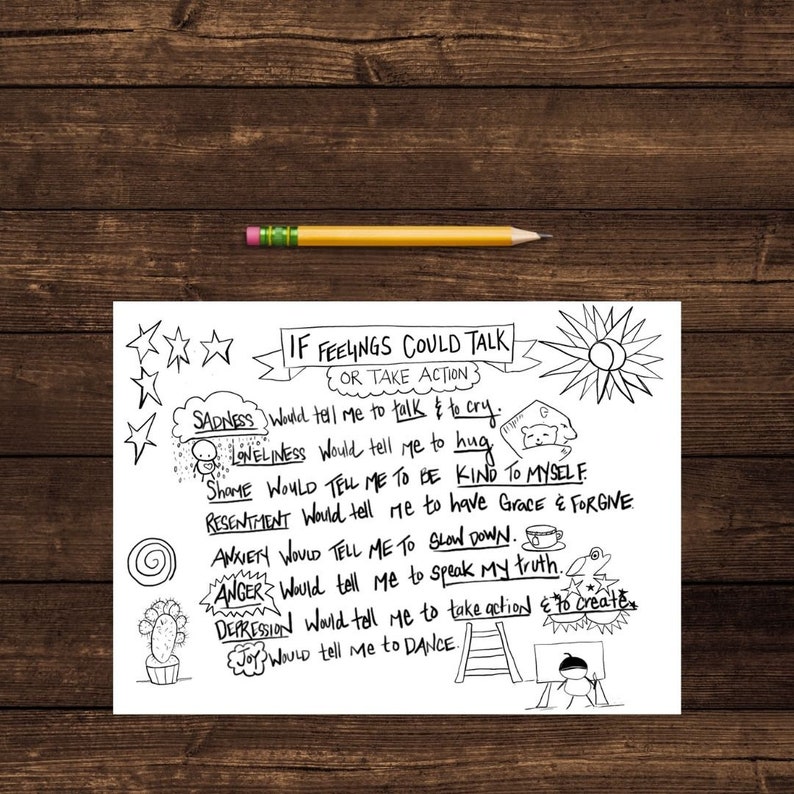 IF FEELINGS COULD TALK
OR TAKE ACTION
SADNESS would tell me to talk & to cry.
LONELINESS would tell me to hug
G
SHAME WOULD TELL ME TO BE KIND TO MYSELF.
RESENTMENT would tell me to have GRACE & FORGIVE.
ANXIETY WOULD TELL ME TO SLOW DOWN.
ANGER would tell me to speak MY truth.
DEPRESSION would tell me to take action & to create.
JOY WOULD tell me to DANCE.